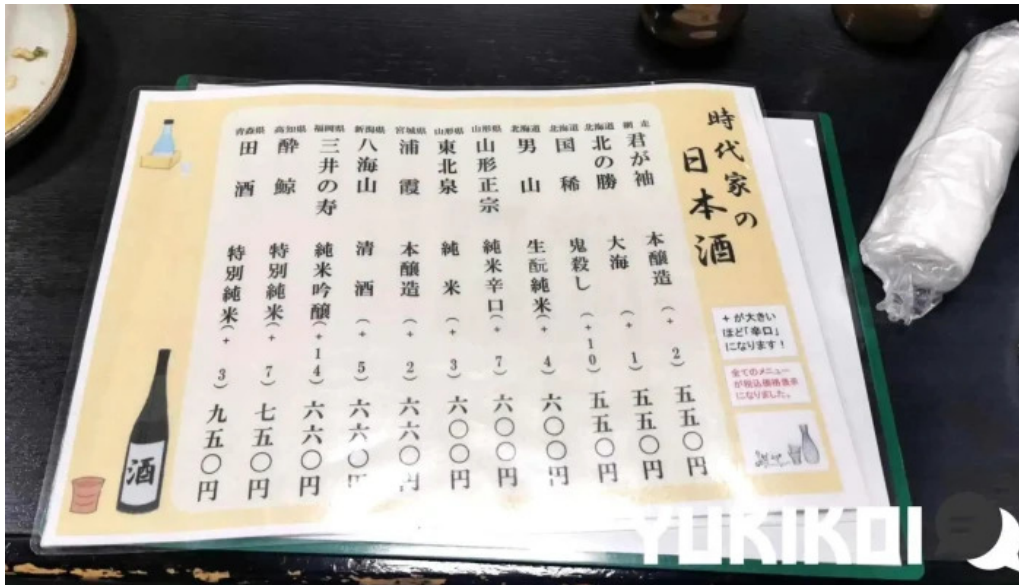 時代家の
日本酒
網走 君が袖 本醸造(+2) 五五〇円
北海道 北の勝 大海(+1) 五五〇円
北海道 国稀 鬼殺し(+10) 五五〇円
北海道 男山 生酛純米(+4) 六〇〇円
山形県 山形正宗 純米辛口(+7) 六〇〇円
山形県 東北泉 純米(+3) 六〇〇円
宮城県 浦霞 本醸造(+2) 六六〇円
新潟県 八海山 清酒(+5) 六六〇円
福岡県 三井の寿 純米吟醸(+14) 六六〇円
高知県 酔鯨 特別純米(+7) 七五〇円
青森県 田酒 特別純米(+3) 九五〇円
+が大きい
ほど「辛口」
になります！
全てのメニュー
が税込価格表示
になりました。
酒
YUKIKOI